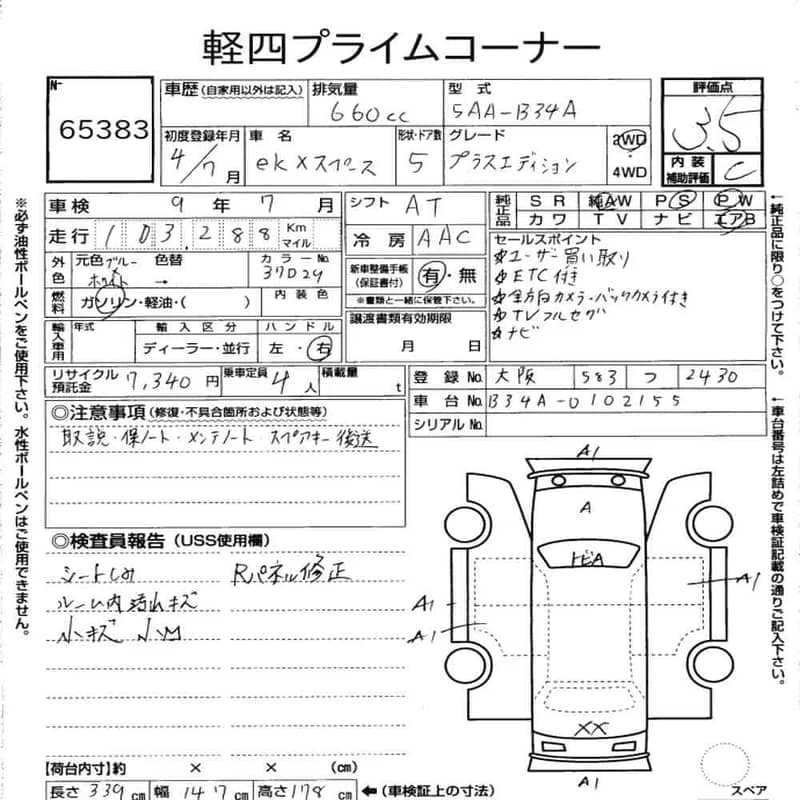 軽四プライムコーナー
N-
65383
車歴(自家用以外は記入)
排気量
660cc
型 式
5AA-B34A
評価点
3.5
内装補助評価
C
初度登録年月
4/7月
車 名
ekXスペース
形状・ドア数
5
グレード
プラスエディション
2WD
・
4WD
車検 9年 7月
シフト AT
純正品
SR 純AW PS PW
カワ TV ナビ エアB
走行 103,288 Km マイル
冷房 AAC
セールスポイント
☆ユーザー買い取り
☆ETC付き
☆全方向カメラ・バックカメラ付き
☆TVフルセグ
☆ナビ
外色
元色 ブルー ホワイト
色替 →
カラーNo.
37D24
新車整備手帳
(保証書付)
有・無
※書類と一緒に保管下さい。
燃料
ガソリン・軽油・( )
内装色
輸入車用
年式
輸入区分
ディーラー・並行
ハンドル
左・右
譲渡書類有効期限
月 日
リサイクル預託金 7,340円
乗車定員 4人
積載量 t
登録No. 大阪 583 つ 2430
車台No. B34A-0102155
シリアルNo.
◎注意事項(修復・不具合箇所および状態等)
取説・保ノート・メンテノート・スペアキー後送
◎検査員報告(USS使用欄)
シートしみ
Rパネル修正
ルーム内汚れキズ
小キズ 小M
A1
A
トビA
A1
A1
A1
XX
A1
スペア
【荷台内寸】約 × × (cm)
長さ 339cm 幅 147cm 高さ 178cm ←(車検証上の寸法)
※必ず油性ボールペンをご使用下さい。水性ボールペンはご使用できません。
←純正品に限り○をつけて下さい。
←車台番号は左詰めで車検証記載の通りご記入下さい。